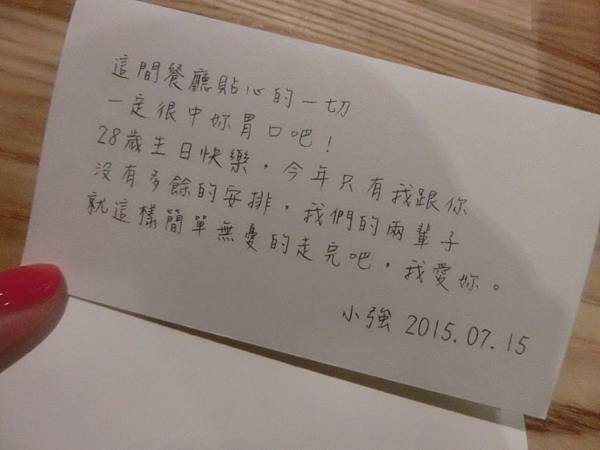 這間餐廳貼心的一切
一定很中妳胃口吧！
28歲生日快樂，今年只有我跟你
沒有多餘的安排，我們的兩輩子
就這樣簡單無憂的走完吧，我愛妳。
小強 2015.07.15